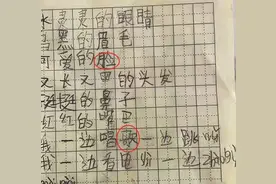 水灵灵的眼睛
黑黑的眉毛
可爱的脸
又长又黑的头发
挺挺的鼻子
红红的嘴巴
我一边唱歌一边跳
我一边看电 一边